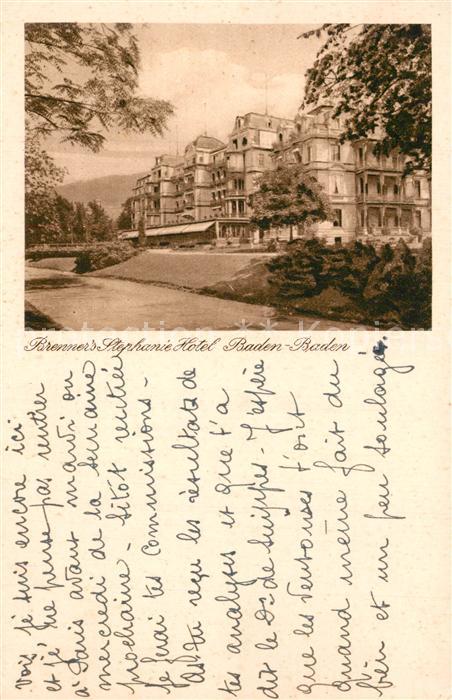 Brenner's Stephanie Hotel Baden-Baden
Vois, je suis encore ici
et je ne peux pas rentrer
à Paris avant mardi ou
mercredi de la semaine
prochaine - Sitôt rentrée
je ferai tes commissions -
As tu reçu les résultats de
tes analyses et que t'a
dit le Dr de - J'espère
que les ventouses t'ont
quand même fait du
bien et un peu soulagé.